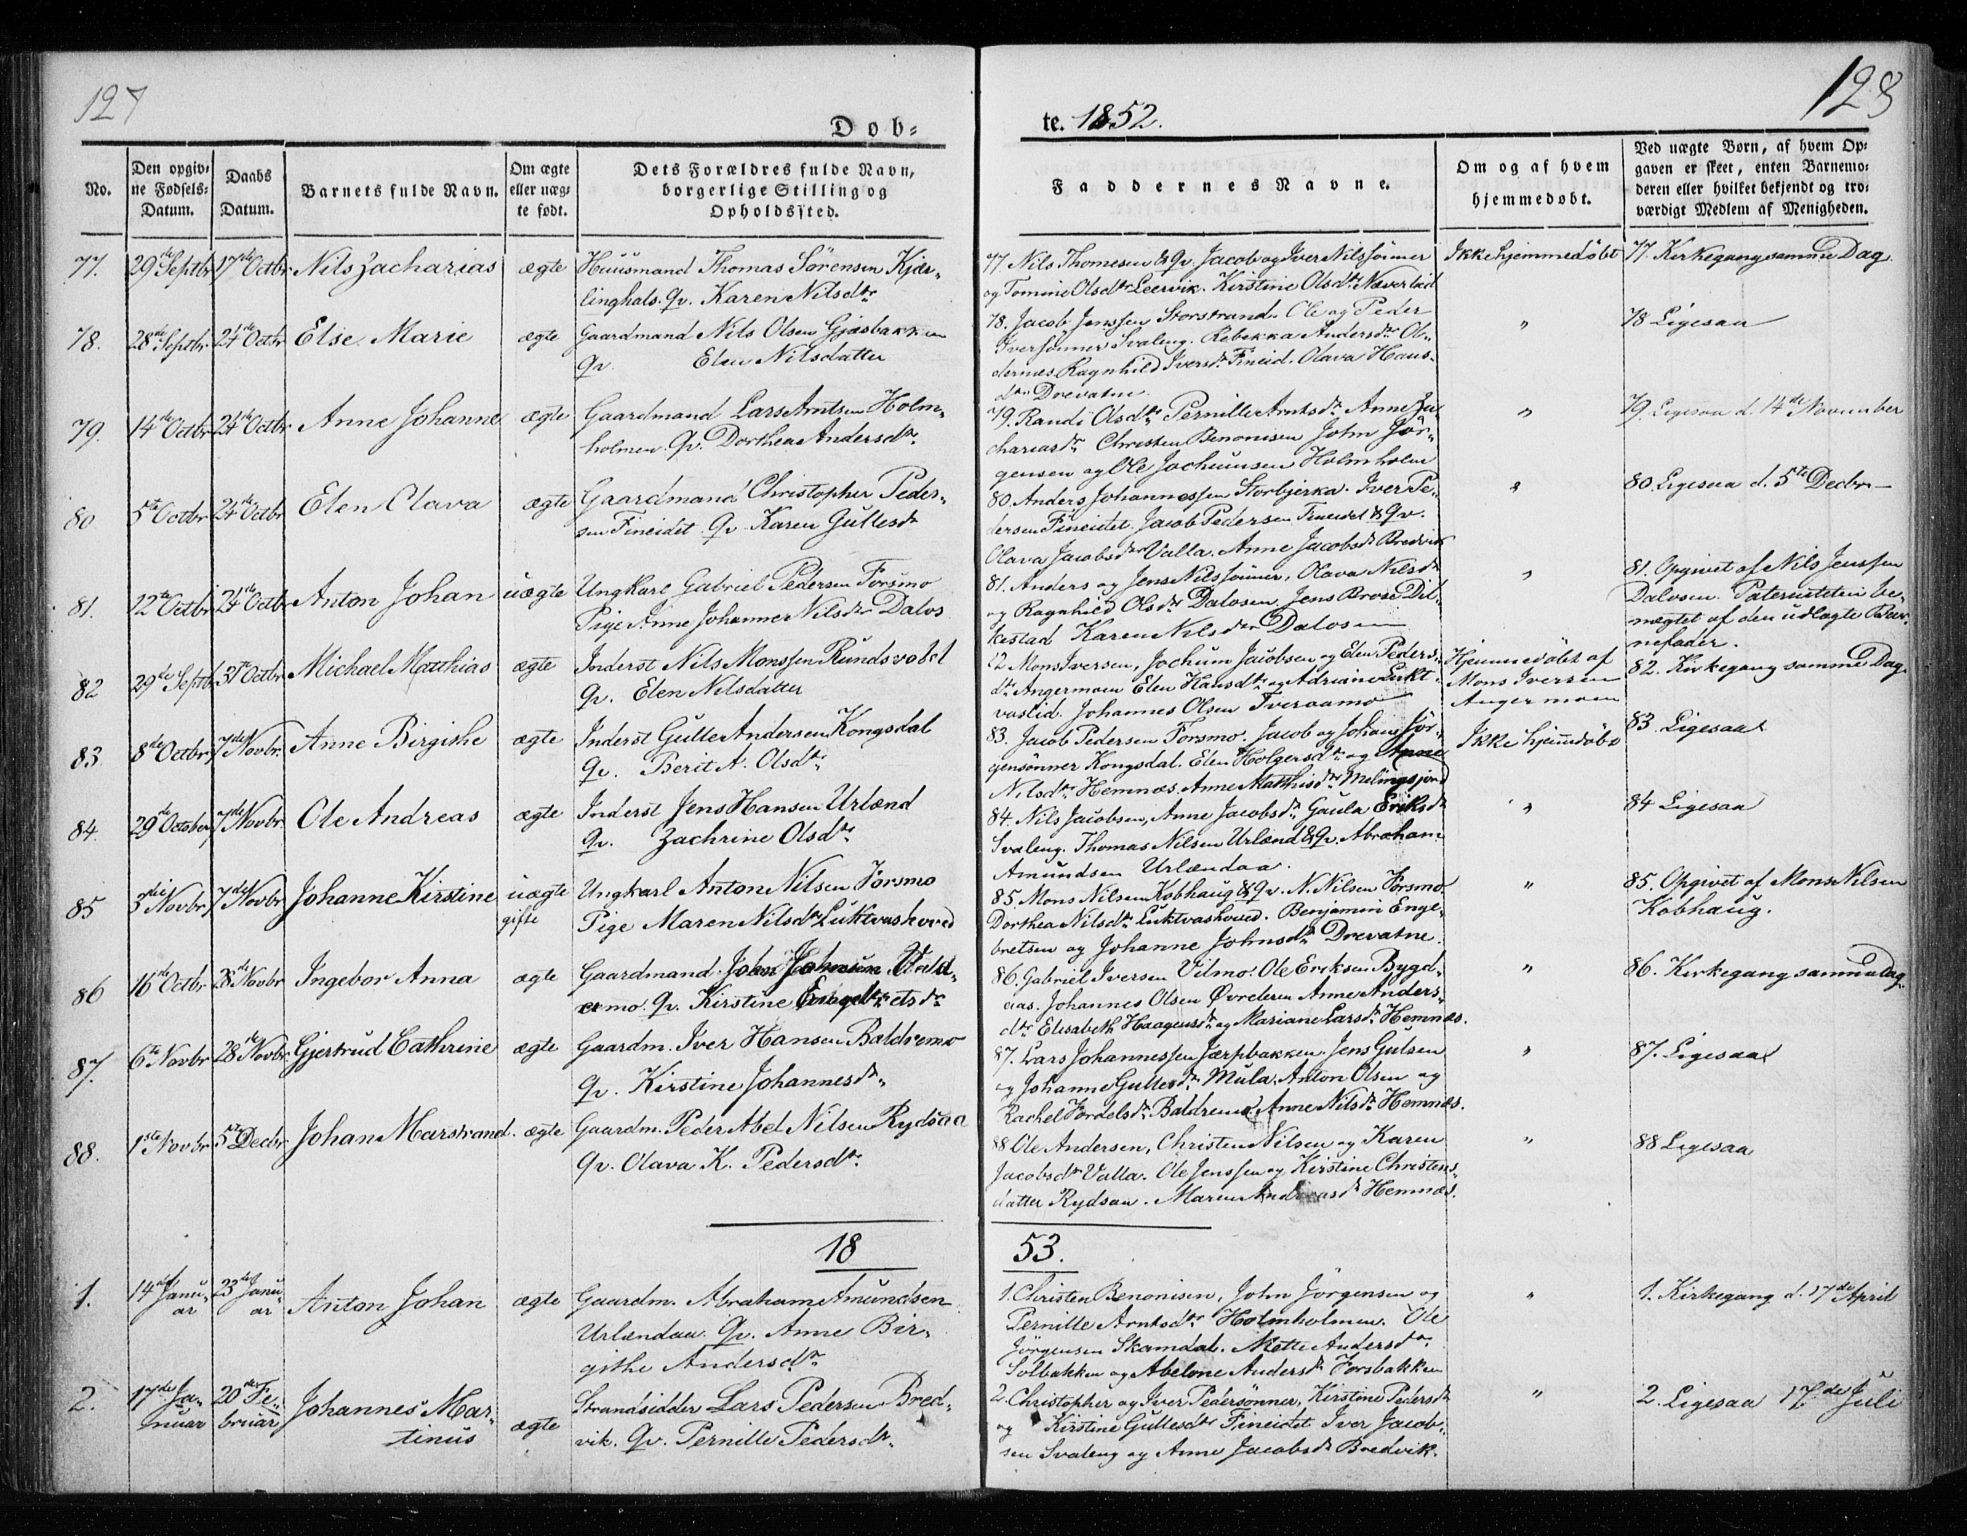 127
128
Døb-
te. 1852.
No.
Den opgiv-
ne Fødsels-
Datum.
Daabs
Datum.
Barnets fulde Navn.
Om ægte
eller uæg-
te født.
Dets Forældres fulde Navn,
borgerlige Stilling og
Opholdssted.
Faddernes Navne.
Om og af hvem
hjemmedøbt.
Ved uægte Børn, af hvem Op-
gaven er skeet, enten Barnemo-
deren eller hvilket bekjendt og tro-
værdigt Medlem af Menigheden.
77. 29de Septbr 17de Octbr Nils Zacharias ægte Huusmand Thomas Sörensen Kjær-
linghals. Qv. Karen Nilsdtr
77. Nils Thomesen & Qv. Jacob og Iver Nilssönner
og Tomine Olsdtr Leervik. Kirstine Olsdtr Næverlid
Ikke hjemmedöbt
77. Kirkegang samme Dag.
78. 28de Septbr 24de Octbr Else Marie ægte Gaardmand Nils Olsen Gjæsbakken
Qv. Elen Nilsdatter
78. Jacob Jenssen Storstrand. Ole og Peder
Iversönner Svaleng. Rebekka Andersdtr Ol-
dernæs Ragnhild Iversdtr Fineid. Olava Hans-
dtr Drevatne
"
78 Ligesaa
79. 14de Octbr 24de Octbr Anne Johanne ægte Gaardmand Lars Arntsen Holm-
holmen. Qv. Dorthea Andersdtr
79. Randi Olsdtr Pernille Arntsdtr Anne Za-
chariasdtr Christen Benonisen John Jör-
gensen og Ole Jochumsen Holmholm
"
79 Ligesaa d. 14de November
80 5te Octbr 24de Octbr Elen Olava ægte Gaardmand Christopher Peder-
sen Fineidet Qv. Karen Gullesdr
80. Anders Johannessen Storbjerka. Iver Pe-
dersen Fineidet, Jacob Pedersen Fineidet & Qv.
Olava Jacobsdtr Valla. Anne Jacobsdr Bredvik
"
80. Ligesaa d. 5te Decbr
81. 12te Octbr 24de Octbr Anton Johan uægte Ungkarl Gabriel Pedersen Forsmo
Pige Anne Johanne Nilsdtr Dalos
81. Anders og Jens Nilssönner, Olava Nilsdr
og Ragnhild Olsdtr Dalosen, Jens Brose Dil-
kestad Karen Nilsdtr Dalosen
"
81. Opgivet af Nils Jenssen
Dalosen. Paterniteten be-
nægtet af den udlagte Bar-
nefader.
82 29de Septbr 31te Octbr Michael Matthias ægte Inderst Nils Monssen Rundsvobel
Qv. Elen Nilsdatter
82 Mons Iversen, Jochum Jacobsen og Elen Peders-
dtr Angermoen Elen Hansdtr og Adriane Lukt-
vaslid. Johannes Olsen Tveraamo
Hjemmedöbt af
Mons Iversen
Angermoen
82. Kirkegang samme Dag.
83 8de Octbr 7de Novbr. Anne Birgithe ægte Inderst Gulle Andersen Kongsdal
Qv. Berit A. Olsdtr
83. Jacob Pedersen Forsmo. Jacob og Johan Jör-
gensönner Kongsdal. Elen Holgersdtr og Anne
Nilsdtr Hemnæs. Anne Matthisdtr Melingsjord
Ikke hjemmdöbt
83. Ligesaa
84. 29de October 7de Novbr. Ole Andreas ægte Inderst Jens Hansen Urlænd
Qv. Zachrine Olsdtr
84. Nils Jacobsen, Anne Jacobsdr Gaula Eriksdr
Svaleng. Thomas Nilsen Urlænd & Qv. Abraham
Amundsen Urlændaa.
"
84 Ligesaa
85 3die Novbr 7de Novbr Johanne Kirstine uægte
gifte
Ungkarl Anton Nilsen Forsmo
Pige Maren Nilsdtr Luktvashoved
85. Mons Nilsen Kobhaug & Qv. N. Nilsen Forsmo
Dorthea Nilsdtr Luktvashoved. Benjamin Enge-
bretsen og Johanne Johnsdtr Drevatne.
"
85. Opgivet af Mons Nilsen
Kobhaug.
86 16de Octbr 28de Novbr Ingebor Anna ægte Gaardmand John Johnsen
mo. Qv. Kirstine
86. Gabriel Iversen Vilmo. Ole Eriksen Bygd-
aas. Johannes Olsen Övrederen Anne Anders-
dtr Elisabeth Haagensdtr og Mariane Larsdtr Hemnæs.
"
86. Kirkegang samme Dag.
87. 6te Novbr 28de Novbr. Gjertrud Cathrine ægte Gaardm. Iver Hansen Baldremo
Qv. Kirstine Johannesdtr
87. Lars Johannessen Jærpbakken. Jens Gulsen
og Johanne Gullesdtr Mula. Anton Olsen og
Rachel Fordelsdtr Baldremo Anne Nilsdtr Hemnæs.
"
87. Ligesaa
88. 1ste Novbr 5te Decbr Johan Marstrand. ægte Gaardm. Peder Abel Nilsen Rydsaa
Qv. Olava K. Pedersdtr
88 Ole Andersen, Christen Nilsen og Karen
Jacobsdtr Valla. Ole Jenssen og Kirstine Christens-
datter Rydsaa. Maren Andreasdr Hemnæs.
"
88 Ligesaa
18
53.
1. 14de Janu-
ar
23de Janu-
ar
Anton Johan ægte Gaardm. Abraham Amundsen
Urlændaa. Qv. Anne Bir-
githe Andersdtr
1. Christen Benonisen, John Jörgensen og
Pernille Arntsdtr Holmholmen. Ole
Jörgensen Skamdal. Mette Andersdtr
Solbakken og Abelone Andersdtr Forsbakken
"
1. Kirkegang d. 17de April
2. 17de Ja-
nuar
20de Fe-
bruar
Johannes Mar-
tinus
ægte
Strandsidder Lars Pedersen Bred-
vik. Qv. Pernille Pedersdtr
2. Christopher og Iver Pedersönner, Kirstine Pedersdr
og Kirstine Gullesdtr Fineidet Iver Jacob-
sen Svaleng og Anne Jacobsdr Bredvik.
"
2. Ligesaa 17de Juli